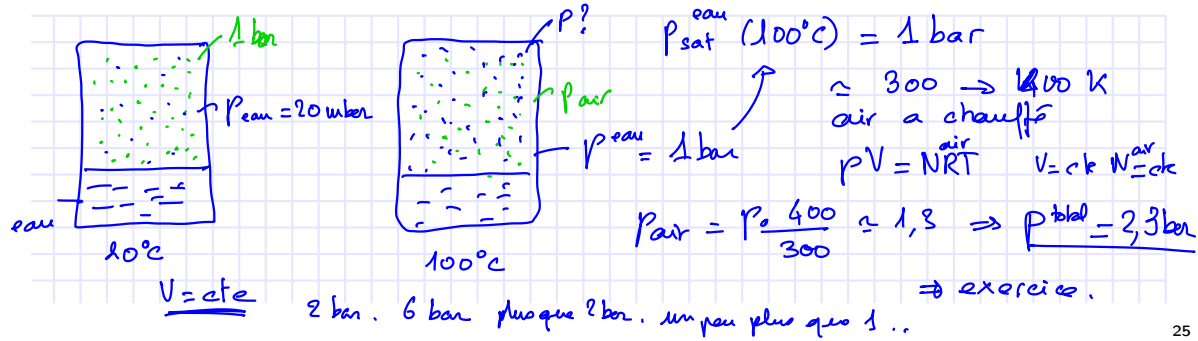 1 bar
P eau = 20 mbar
eau
20°C
V = cte
P?
P air
p eau = 1 bar
100°C
P sat eau (100°C) = 1 bar
≃ 300 → 400 K
air a chauffé
pV = N air RT V = cte N air = cte
P air = P₀ 400/300 ≃ 1,3 ⇒ P total = 2,3 bar
⇒ exercice.
2 bar. 6 bar plus que 2 bar. un peu plus que 1 ..
25